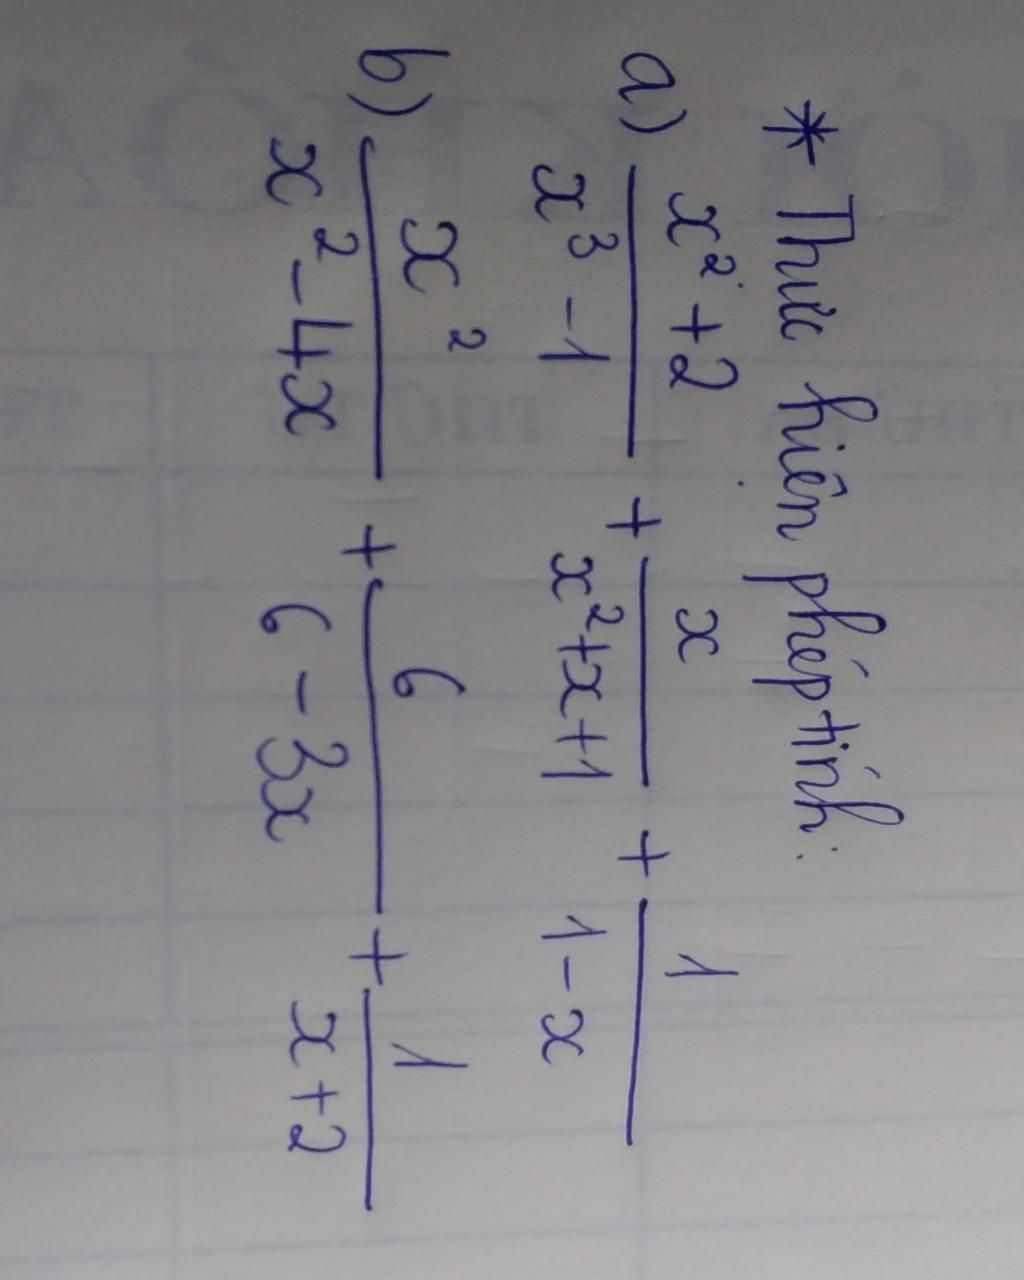 * Thực hiện phép tính:
a) \frac{x^2+2}{x^3-1} + \frac{x}{x^2+x+1} + \frac{1}{1-x}
b) \frac{x^2}{x^2-4x} + \frac{6}{6-3x} + \frac{1}{x+2}